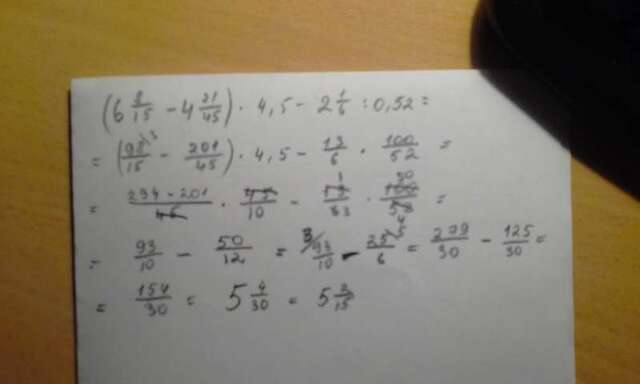 (6 8/15 - 4 21/45) · 4,5 - 2 1/6 : 0,52 =
= (98/15 - 201/45) · 4,5 - 13/6 · 100/52 =
= 294-201/45 · 45/10 - 13/6 · 100/52 =
= 93/10 - 50/12 = 93/10 - 25/6 = 279/30 - 125/30 =
= 154/30 = 5 4/30 = 5 2/15